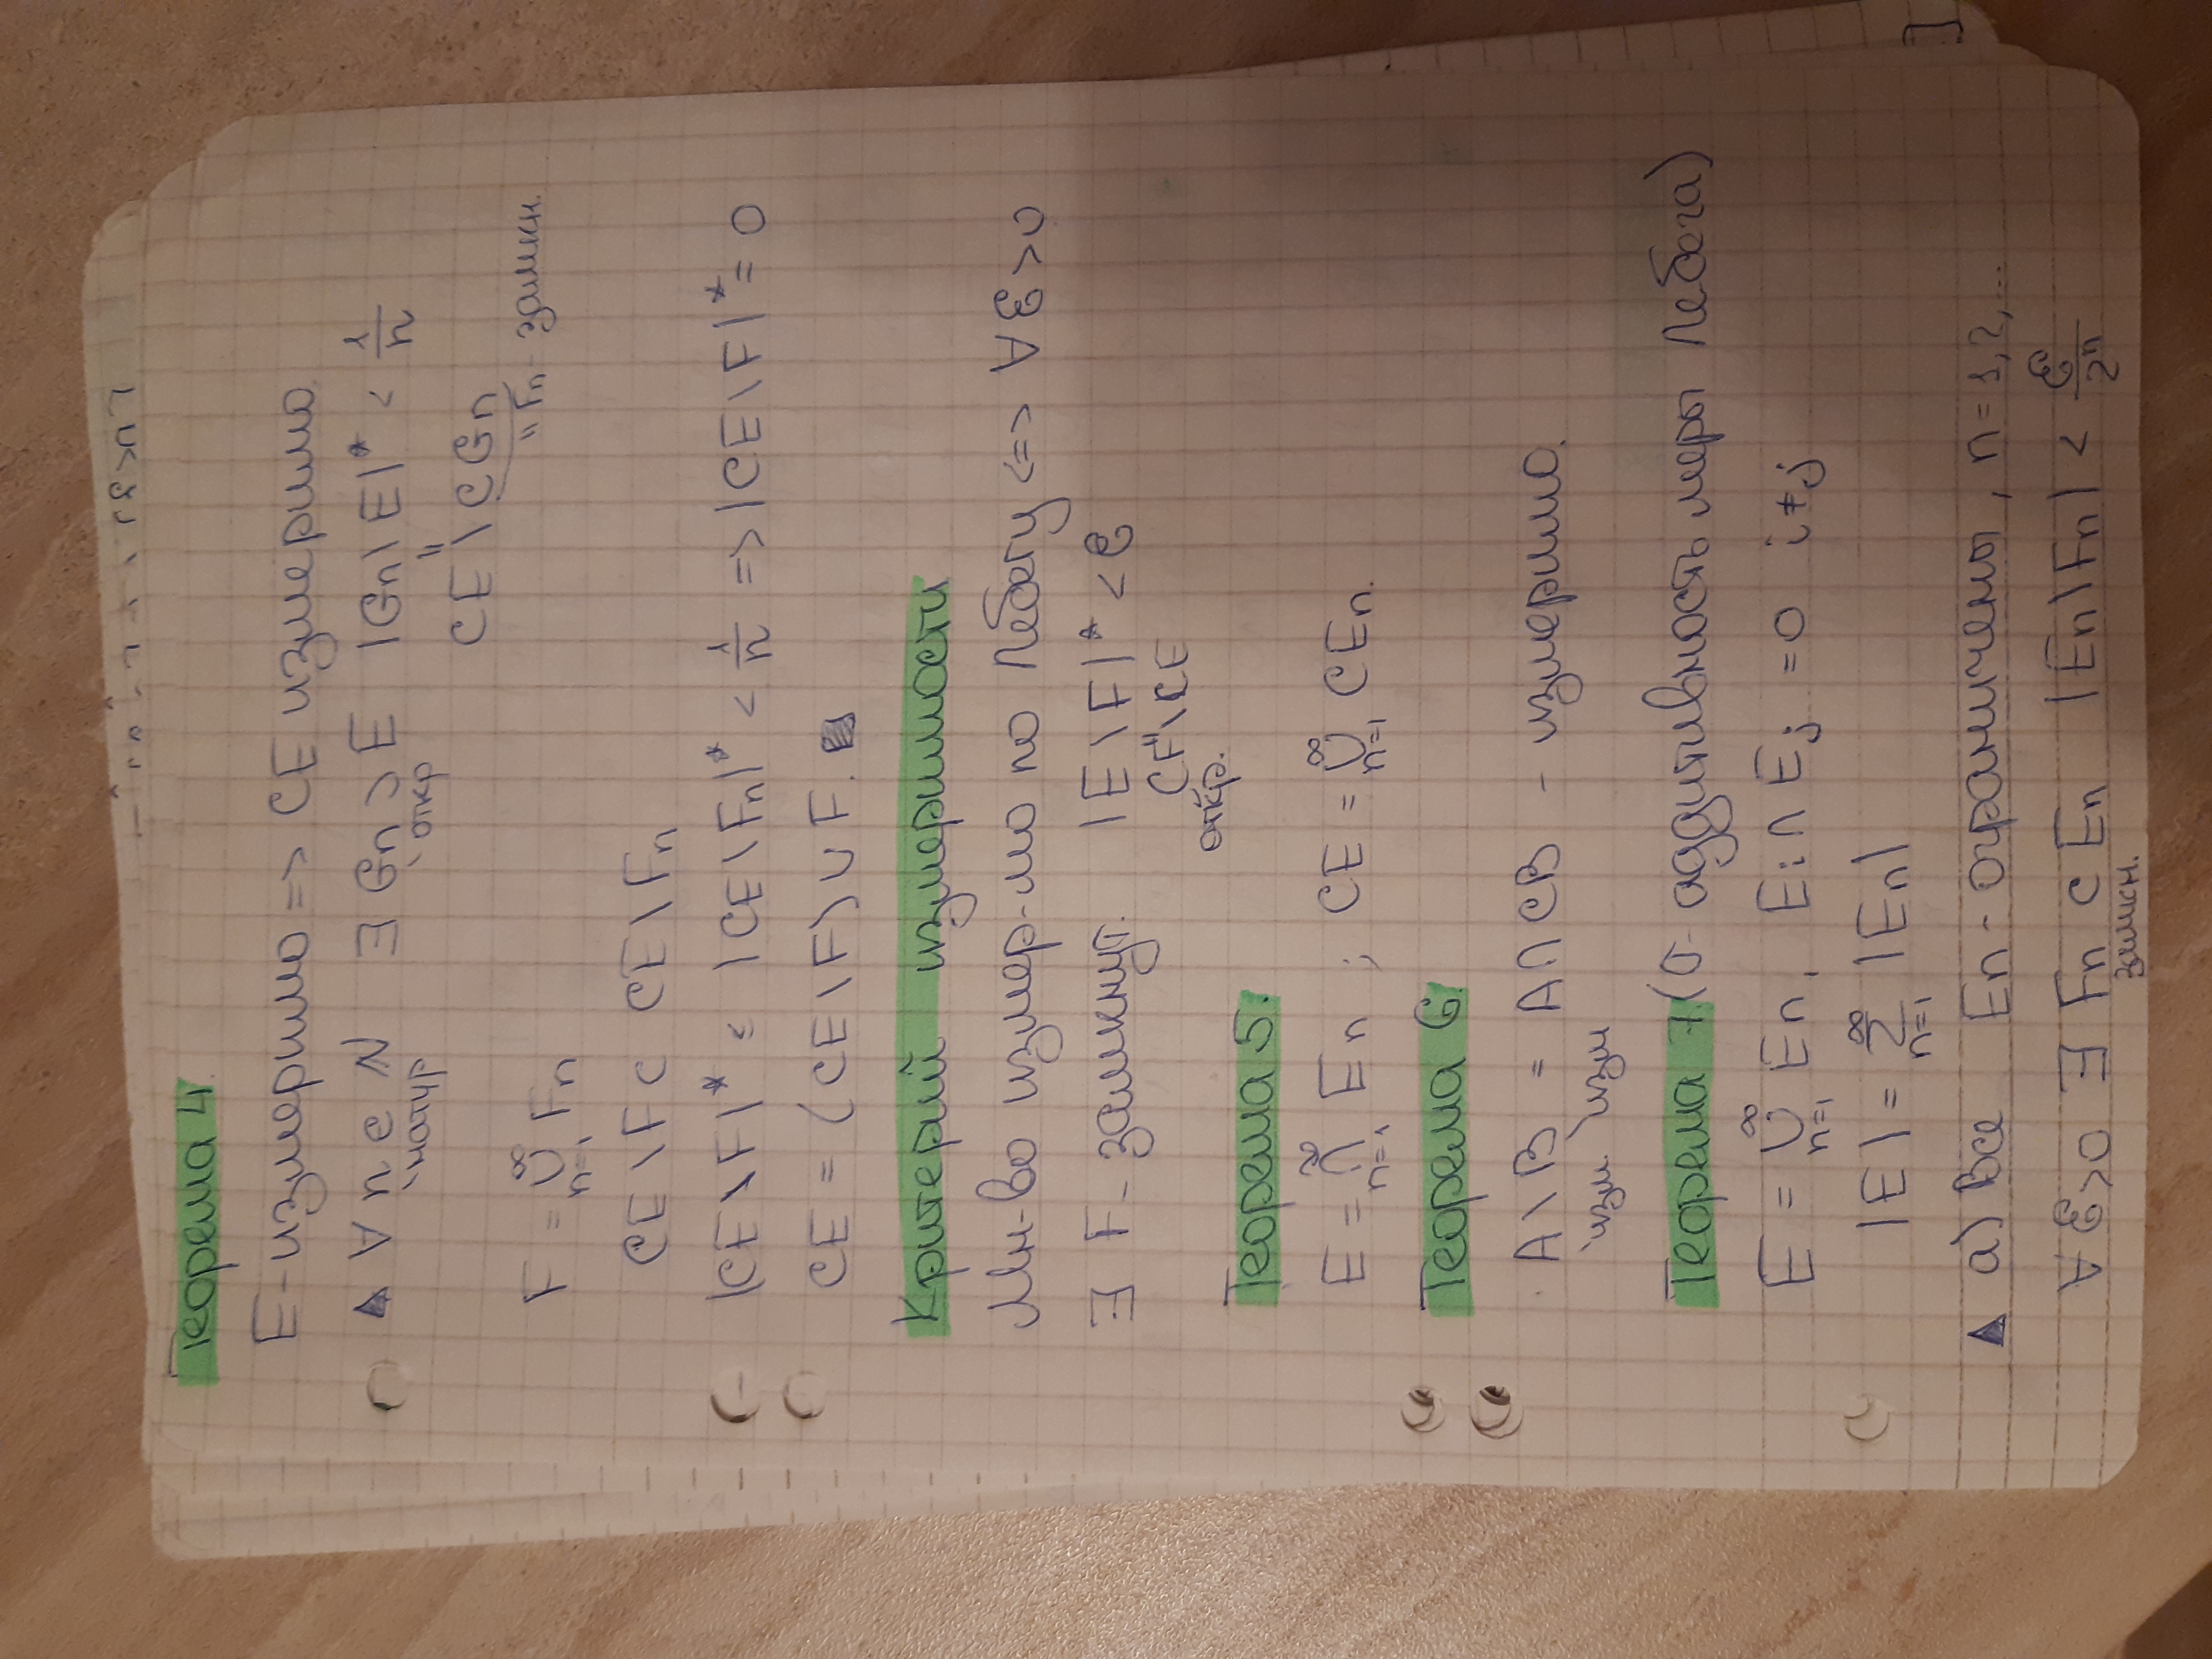 Теорема 4.
E - измеримо => CE измеримо
▲ ∀ n ∈ N ∃ Gn ⊃ E |Gn \ E|* < 1/n
натур. откр. CE \ CGn
= Fn - замкн.
F = ∪_{n=1}^∞ Fn
CE \ F ⊂ CE \ Fn
|CE \ F|* ≤ |CE \ Fn|* < 1/n => |CE \ F|* = 0
CE = (CE \ F) ∪ F. ■
Критерий измеримости
Мн-во измер-мо по Лебегу <=> ∀ ε > 0
∃ F - замкнут. |E \ F|* < ε
CF \ CE
откр.
Теорема 5.
E = ∩_{n=1}^∞ En ; CE = ∪_{n=1}^∞ CEn.
Теорема 6.
A \ B = A ∩ CB - измеримо.
изм. изм
Теорема 7 (σ - аддитивность меры Лебега)
E = ∪_{n=1}^∞ En, Ei ∩ Ej = 0 i ≠ j
|E| = ∑_{n=1}^∞ |En|
▲ а) Все En - ограничены, n = 1, 2, ...
∀ ε > 0 ∃ Fn ⊂ En |En \ Fn| < ε/2^n
замкн.